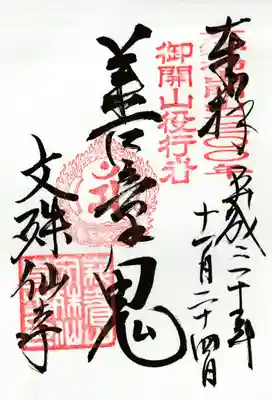 奉拝
平成三十年
十一月二十四日
御開山役行者
善童鬼
文殊仙寺